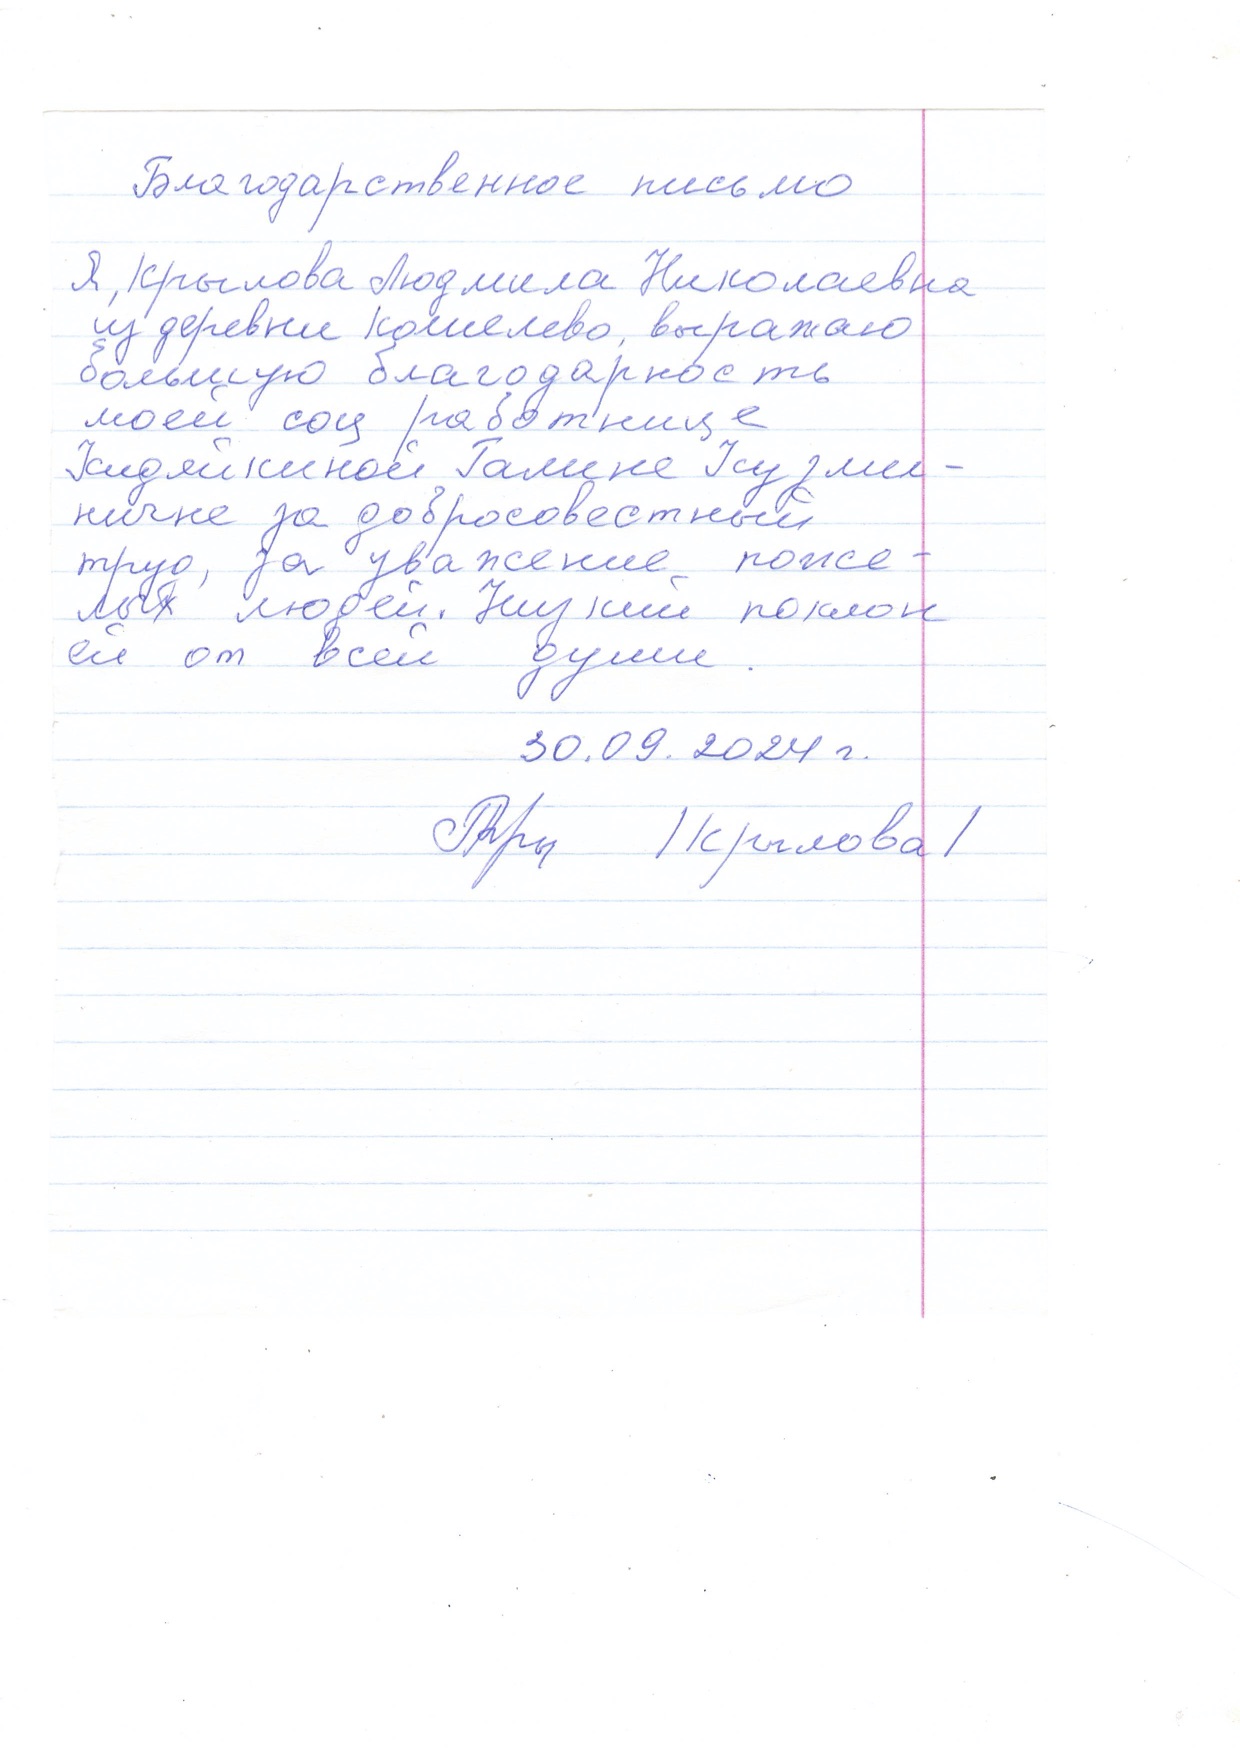 Благодарственное письмо
Я, Крылова Людмила Николаевна
из деревни Кошелево, выражаю
большую благодарность
моей соц работнице
Кидяйкиной Галине Кузьми-
ничне за добросовестный
труд, за уважение пожи-
лых людей. Низкий поклон
ей от всей души.
30.09.2024 г.
/Крылова/